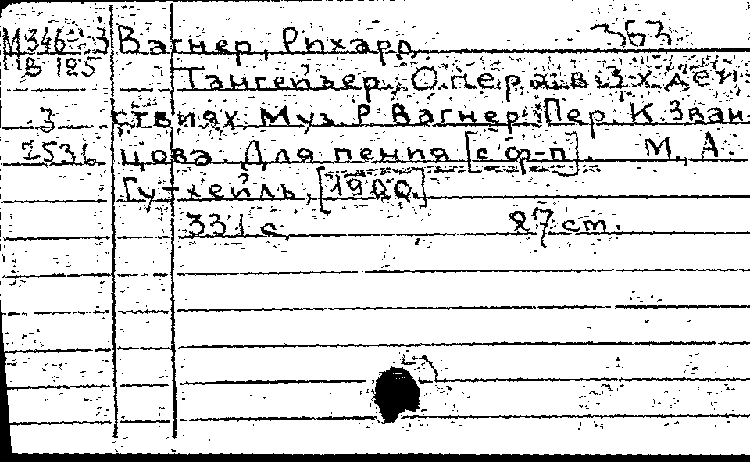 М346-3 Вагнер, Рихард 363
В 125 Тангейзер. Опера в 3х дей-
3 ствиях. Муз. Р. Вагнер. Пер. К. Зван-
2531 цова. Для пения [с ф-п]. М., А.
Гутхейль, [1900.]
331 с. 27 ст.